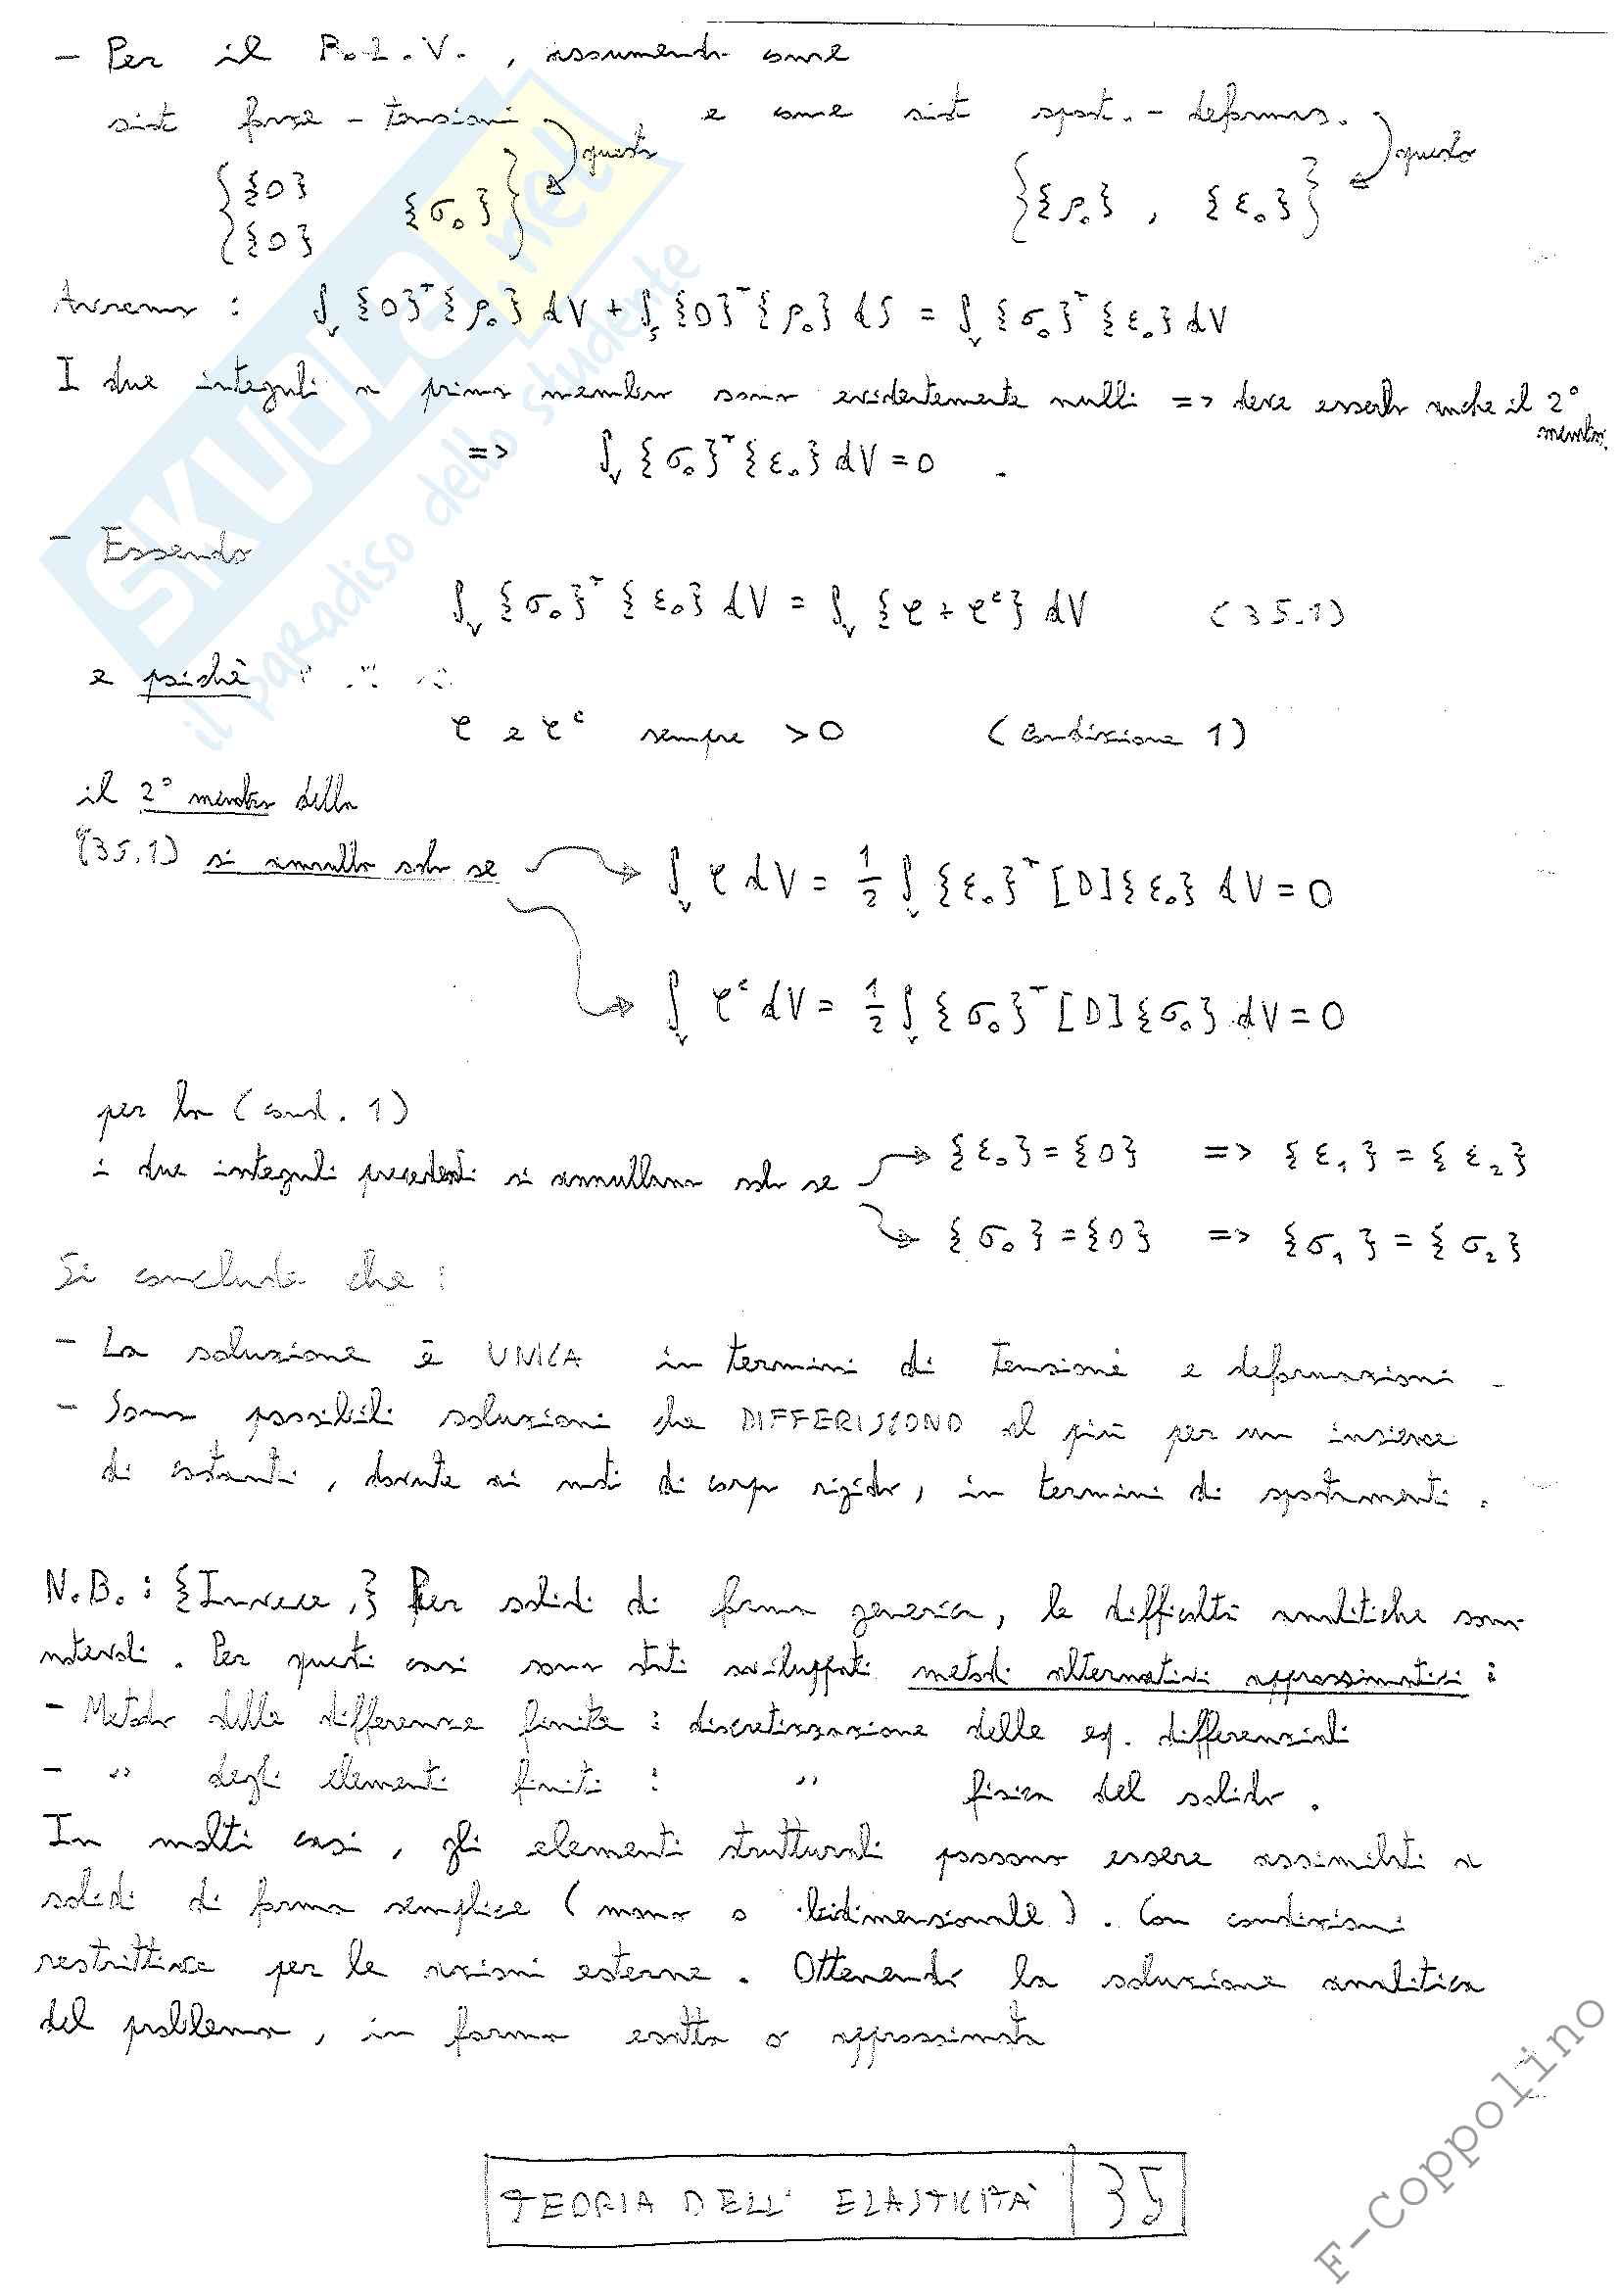 - Per il P.L.V. , assumendo come
sist forze - tensioni , e come sist spost. - deformaz.
questo questo
{ {0} {0} {σ₀} } { {ρ₀} , {ε₀} }
Avremo : ∫ᵥ {0}ᵀ {ρ₀} dV + ∫ₛ {0}ᵀ {ρ₀} dS = ∫ᵥ {σ₀}ᵀ {ε₀} dV
I due integrali a primo membro sono evidentemente nulli => deve esserlo anche il 2° membro.
=> ∫ᵥ {σ₀}ᵀ {ε₀} dV = 0 .
- Essendo
∫ᵥ {σ₀}ᵀ {ε₀} dV = ∫ᵥ {φ + φᶜ} dV (35.1)
e poiché
φ e φᶜ sempre > 0 (condizione 1)
il 2° membro della
(35.1) si annulla solo se → ∫ᵥ φ dV = 1/2 ∫ᵥ {ε₀}ᵀ [D] {ε₀} dV = 0
→ ∫ᵥ φᶜ dV = 1/2 ∫ᵥ {σ₀}ᵀ [D] {σ₀} dV = 0
per la (cond. 1)
i due integrali precedenti si annullano solo se → {ε₀} = {0} => {ε₁} = {ε₂}
→ {σ₀} = {0} => {σ₁} = {σ₂}
Si conclude che :
- La soluzione è UNICA in termini di tensioni e deformazioni -
- Sono possibili soluzioni che DIFFERISCONO al più per un insieme
di costanti , dovute ai moti di corpo rigido, in termini di spostamenti .
N.B. : {Invece,} Per solidi di forma generica, le difficoltà analitiche sono
notevoli . Per questi casi sono stati sviluppati metodi alternativi approssimativi :
- Metodo delle differenze finite : discretizzazione delle eq. differenziali
- " degli elementi finiti : " fisica del solido .
In molti casi , gli elementi strutturali possono essere assimilati a
solidi di forma semplice (mono o bidimensionale) . Con condizioni
restrittive per le azioni esterne . Ottenendo la soluzione analitica
del problema , in forma esatta o approssimata
TEORIA DELL' ELASTICITÀ 35
SKUOLA.net
il paradiso dello studente
F-Coppolino